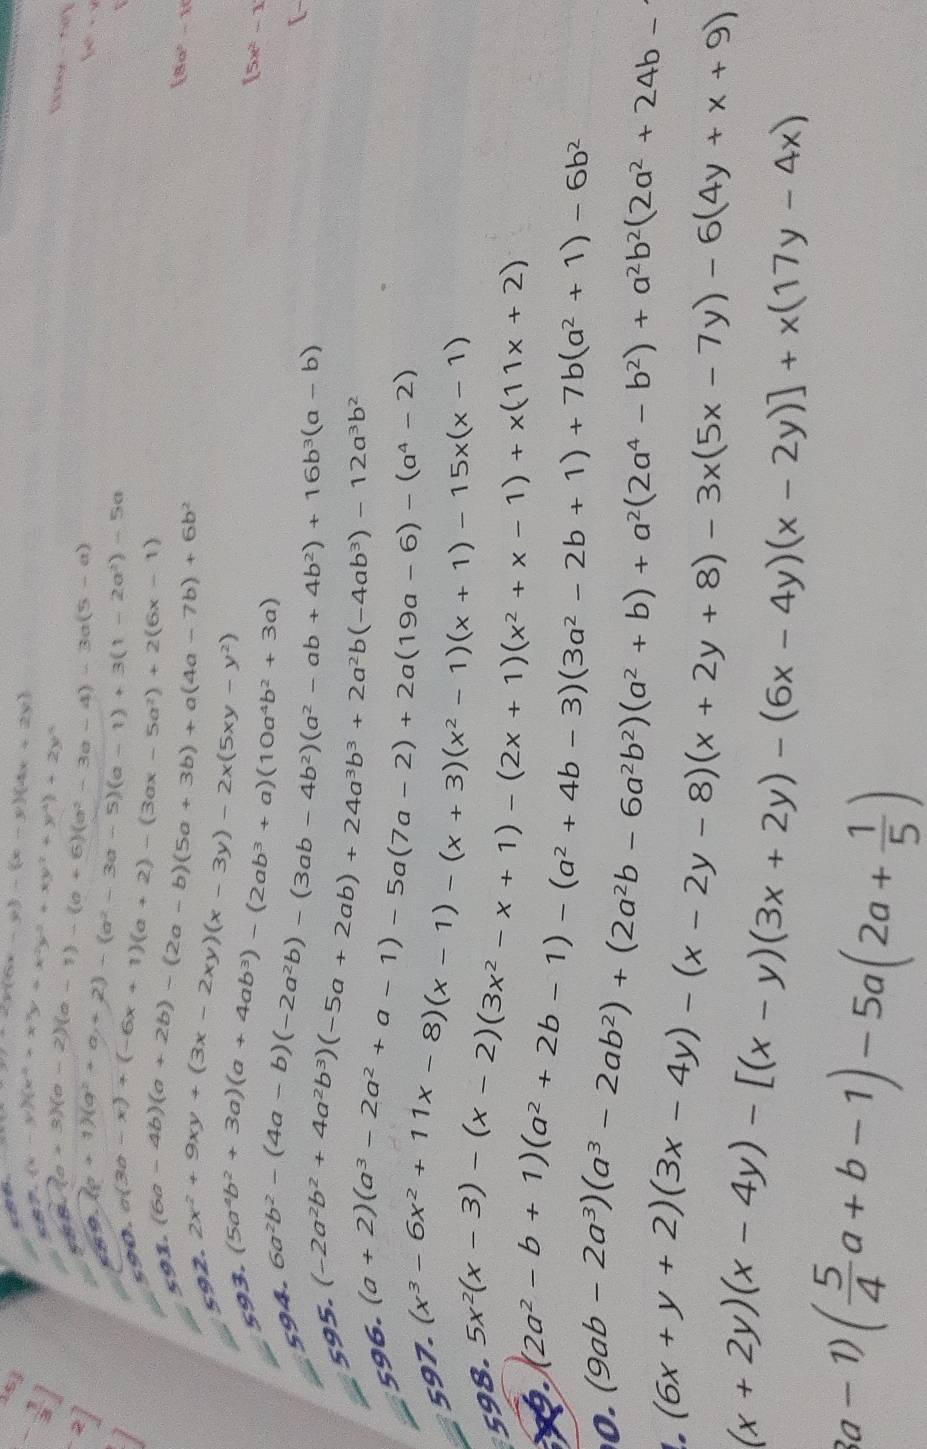 588. (a + 3)(a − 2)(a − 1) − (a + 6)(a² − 3a − 4) − 3a(5 − a)
589. (a + 1)(a² + a + 2) − (a² − 3a − 5)(a − 1) + 3(1 − 2a²) − 5a
590. a(3a − x) + (−6x + 1)(a + 2) − (3ax − 5a²) + 2(6x − 1)
591. (6a − 4b)(a + 2b) − (2a − b)(5a + 3b) + a(4a − 7b) + 6b²
592. 2x² + 9xy + (3x − 2xy)(x − 3y) − 2x(5xy − y²)
593. (5a⁴b² + 3a)(a + 4ab³) − (2ab³ + a)(10a⁴b² + 3a)
594. 6a²b² − (4a − b)(−2a²b) − (3ab − 4b²)(a² − ab + 4b²) + 16b³(a − b)
595. (−2a²b² + 4a²b³)(−5a + 2ab) + 24a³b³ + 2a²b(−4ab³) − 12a³b²
596. (a + 2)(a³ − 2a² + a − 1) − 5a(7a − 2) + 2a(19a − 6) − (a⁴ − 2)
597. (x³ − 6x² + 11x − 8)(x − 1) − (x + 3)(x² − 1)(x + 1) − 15x(x − 1)
598. 5x²(x − 3) − (x − 2)(3x² − x + 1) − (2x + 1)(x² + x − 1) + x(11x + 2)
(2a² − b + 1)(a² + 2b − 1) − (a² + 4b − 3)(3a² − 2b + 1) + 7b(a² + 1) − 6b²
0. (9ab − 2a³)(a³ − 2ab²) + (2a²b − 6a²b²)(a² + b) + a²(2a⁴ − b²) + a²b²(2a² + 24b −
. (6x + y + 2)(3x − 4y) − (x − 2y − 8)(x + 2y + 8) − 3x(5x − 7y) − 6(4y + x + 9)
(x + 2y)(x − 4y) − [(x − y)(3x + 2y) − (6x − 4y)(x − 2y)] + x(17y − 4x)
a − 1)(5/4 a + b − 1) − 5a(2a + 1/5)